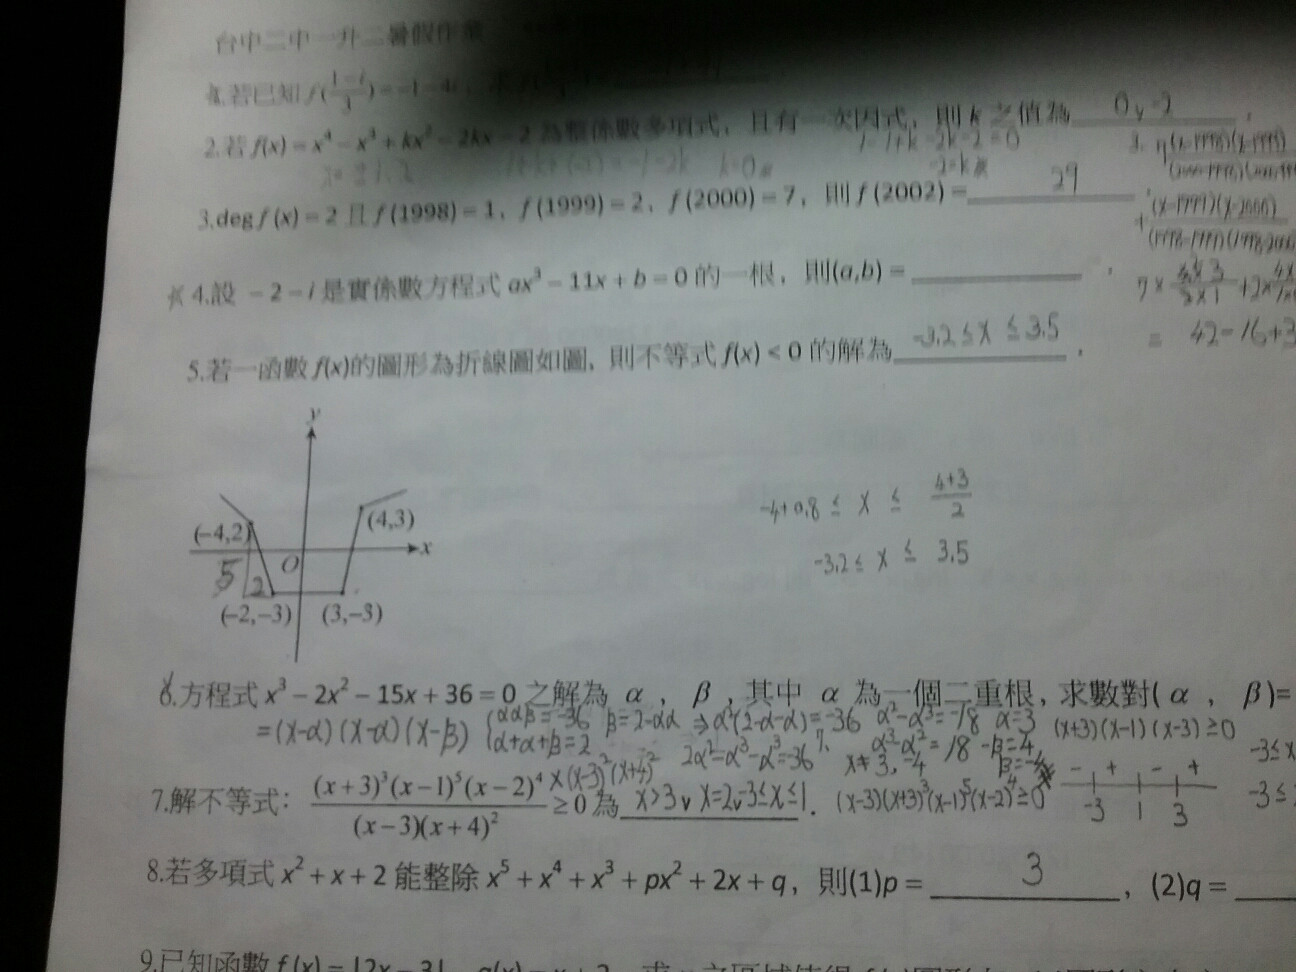 台中二中一升二暑假作業
若已知 f(\frac{1-i}{3}) = -1-4i
2.若 f(x) = x⁴ - x³ + kx² - 2kx - 2 為整係數多項式，且有一次因式，則 k 之值為 0 v -2
1-1+k-2k-2=0
-2=k
k=0
3.deg f(x) = 2 且 f(1998) = 1、f(1999) = 2、f(2000) = 7，則 f(2002) = 29
4.設 -2-i 是實係數方程式 ax³ - 11x + b = 0 的一根，則(a,b) =
= 42-16+3
5.若一函數 f(x)的圖形為折線圖如圖, 則不等式 f(x) < 0 的解為 -3.2 ≤ x ≤ 3.5
y
(-4,2)
(4,3)
x
O
5
2
(-2,-3)
(3,-3)
-4+0.8 ≤ x ≤ \frac{4+3}{2}
-3.2 ≤ x ≤ 3.5
6.方程式 x³ - 2x² - 15x + 36 = 0 之解為 α ， β ，其中 α 為一個二重根，求數對( α ， β )=
=(x-α)(x-α)(x-β) { ααβ=-36 β=2-αα ⇒ α²(2-α-α)=-36 α²-α³=-18 α=3
α+α+β=2 2α²-α³-α³=-36 α³-α²=18 -β=4 β=-4
(x+3)(x-1)(x-3)≥0
7.解不等式： \frac{(x+3)³(x-1)⁵(x-2)⁴}{(x-3)(x+4)²} ×(x-3)²(x+4)² ≥ 0 為 x>3 v x=2 v -3≤x≤1 .
7. x≠3, -4
(x-3)(x+3)³(x-1)⁵(x-2)⁴≥0
- + - +
-3 1 3
-3≤x
-3≤
8.若多項式 x² + x + 2 能整除 x⁵ + x⁴ + x³ + px² + 2x + q，則(1)p = 3 ，(2)q =
9.已知函數 f(x) = |2x - 3|